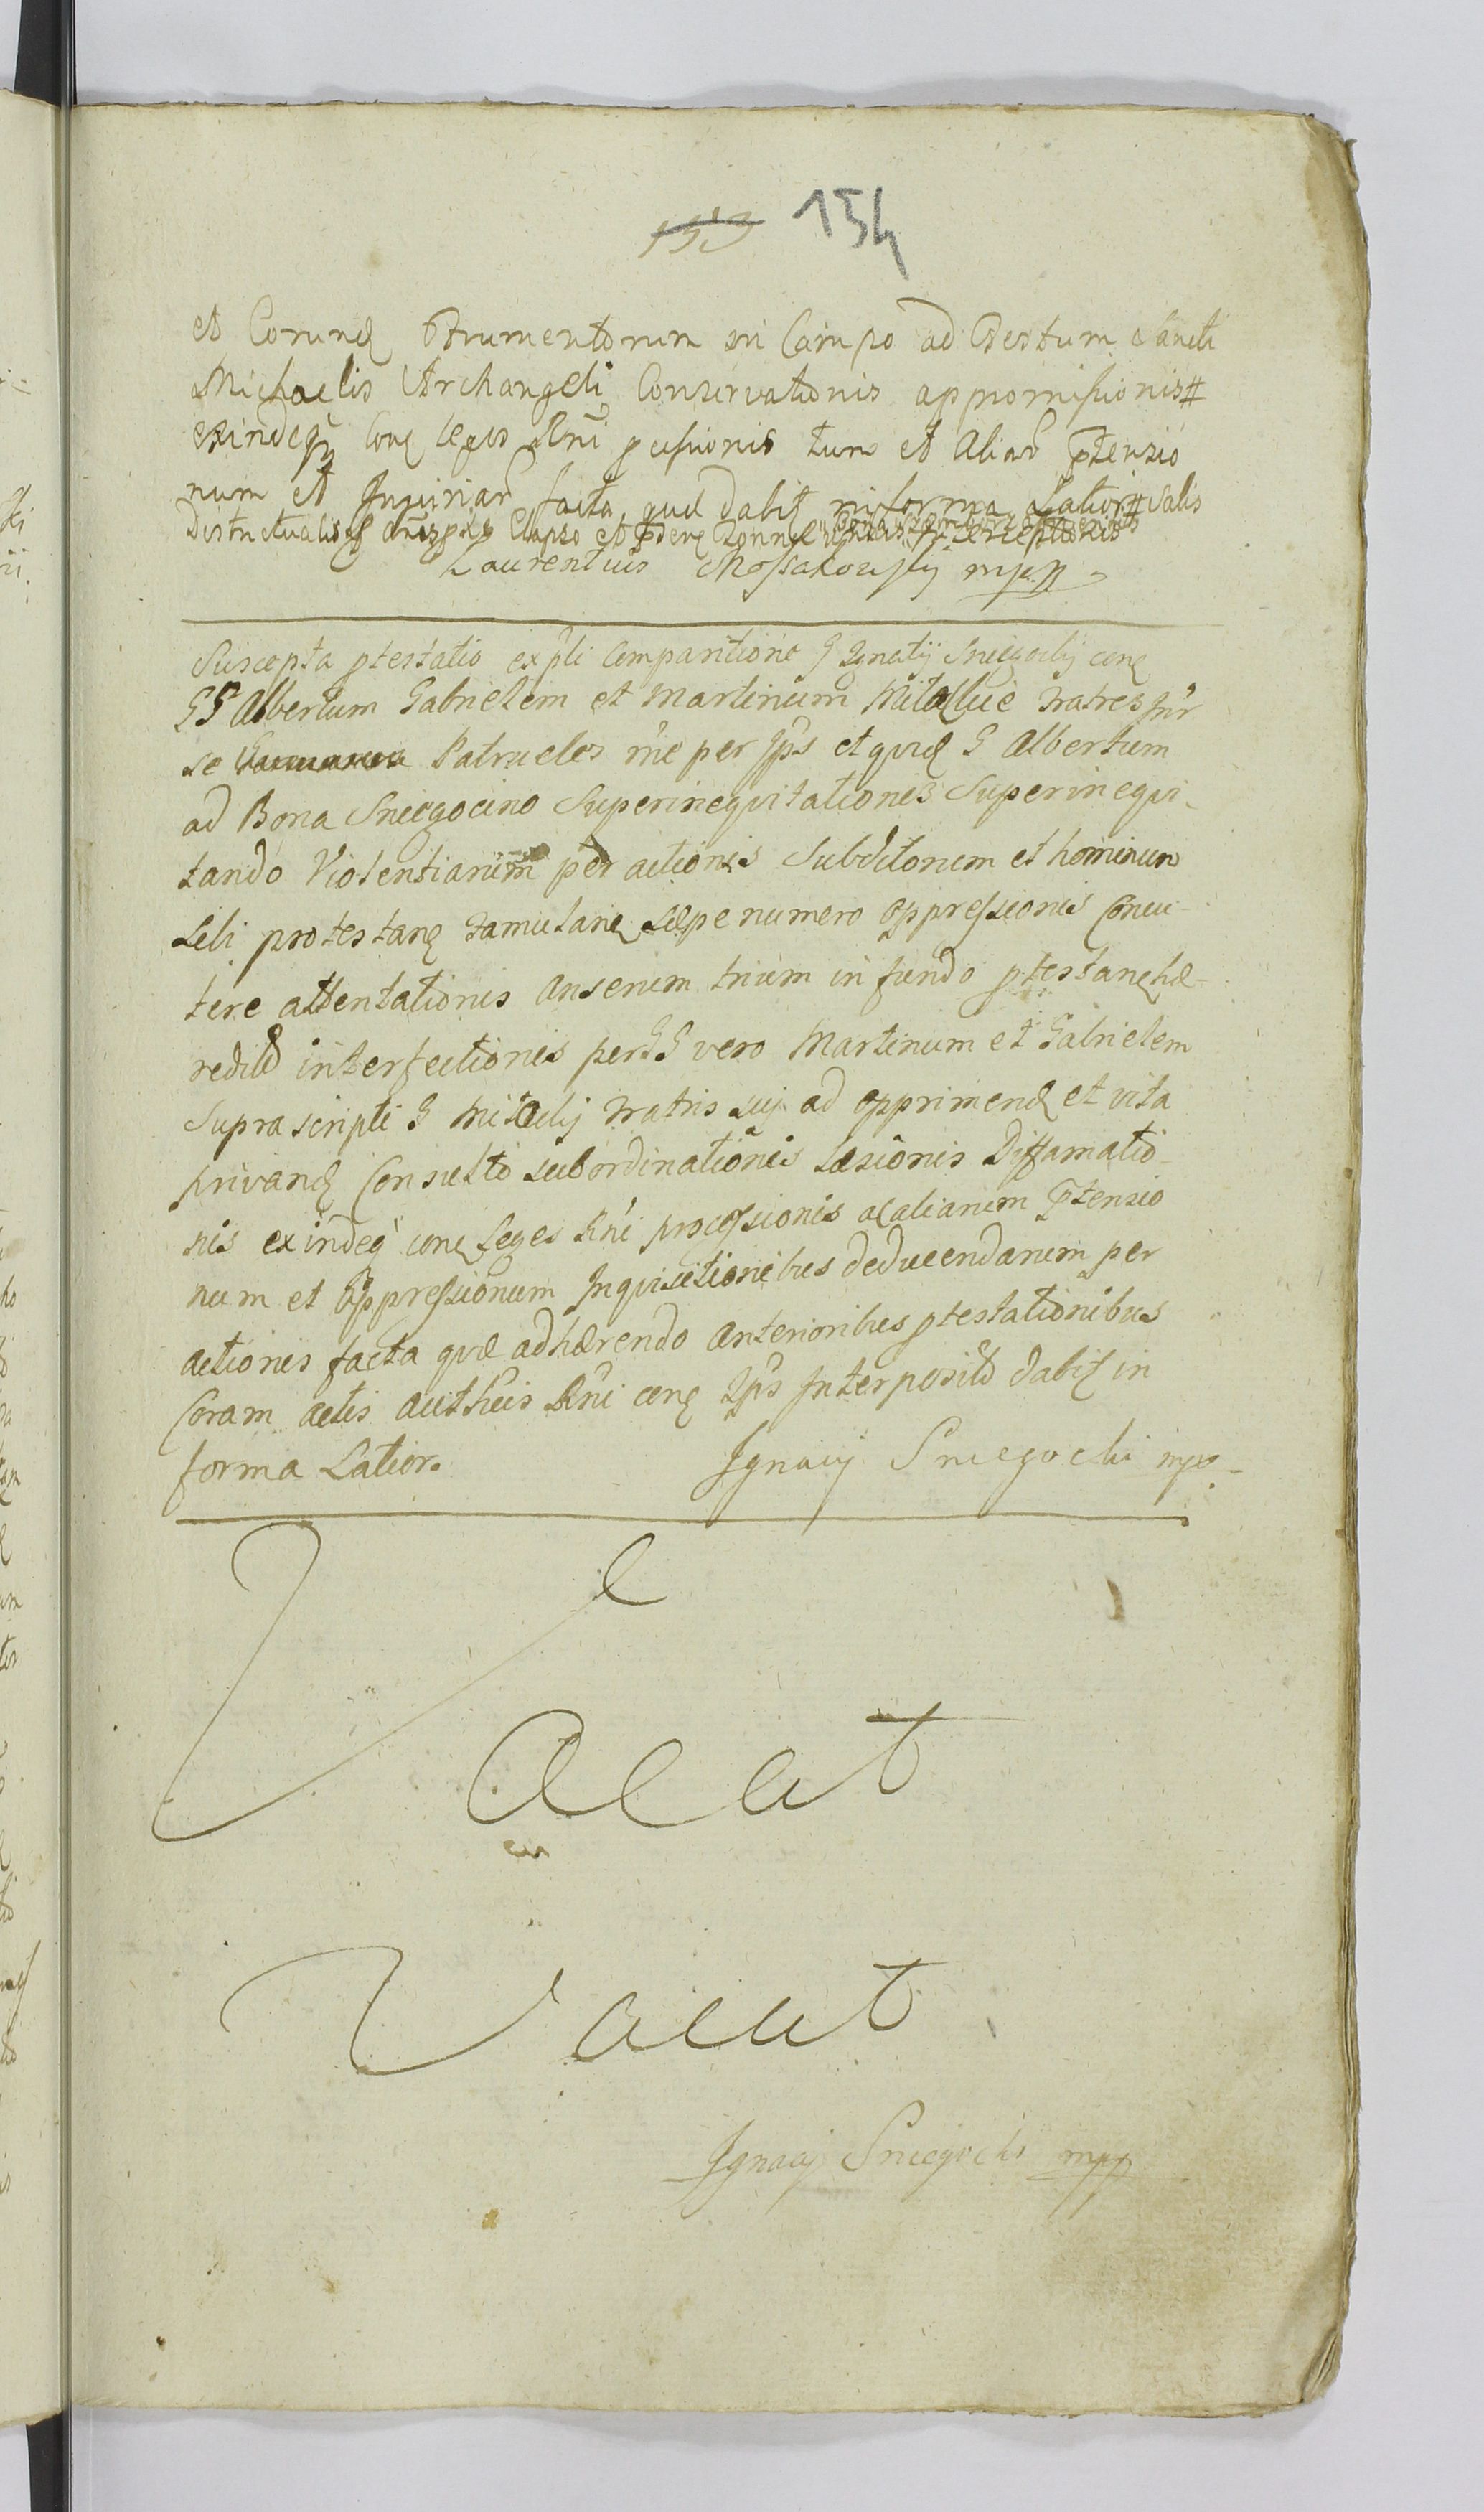 153 154
et Eorund Frumentorum in Campo ad Festum Sancti
Michaelis Archangeli Conservationis appromissionis #
exindeq. Cont leges Rni pcessionis tum et aliar Ptensio
num et Injuriar facta, quæ dabit in forma Latior # Salis
Districtualis Elapso et
Laurentius Mossakowsky mpp
Suscepta ptestatio ex pti Comparitione G Ignatij Sniegocky cont
GG Albertum Gabrielem et Martinum fratres Intr
se Patrueles rne per Ips et quid G Albertum
ad Bona Sniegocino Superinequitationis Superinequi-
tando Violentiarum per actionis Subditorum et hominum
sibi protestant famulan sæpe numero oppressionis
tere attentationis anserum trium in fundo ptestan hæ-
redit interfectionis per GG vero Martinum et Gabrielem
supra scripti G fratris sui ad opprimend et vita
privand Consulto subordinationis Læsionis Diffamatio-
nis exindeq cont Leges Rni processionis ac aliarum Ptensio
num et oppressionum Inquisitionibus deducendarum per
actionis facta quæ adhærendo anterioribus ptestationibus
Coram actis authcis Rni cont Ips Interposit dabit in
forma Latior. Ignacy Sniegocki mpp
Vacat
Vacat
Ignacy Sniegocki mpp